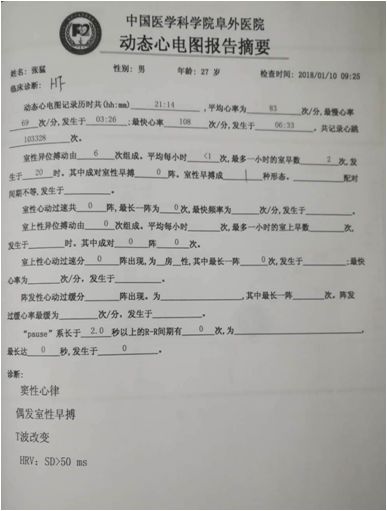 中国医学科学院阜外医院
动态心电图报告摘要
姓名：张猛 性别：男 年龄：27 岁 检查时间：2018/01/10 09:25
临床诊断：HT
动态心电图记录历时共(hh:mm) 21:14 ，平均心率为 83 次/分，最慢心率
69 次/分，发生于 03:26 ；最快心率 108 次/分，发生于 06:33 。共记录心跳
103328 次。
室性异位搏动由 6 次组成。平均每小时 <1 次，最多一小时的室早数 2 次，发
生于 20 时。其中成对室性早搏 0 阵。室性早搏成 1 种形态。 配对
间期不等，发生于 。
室性心动过速共 0 阵，最长一阵为 0 次，最快频率为 次/分，发生于 。
室上性异位搏动由 0 次组成。平均每小时 次，最多一小时的室上早数 次，
发生于 时。其中成对 0 阵 0 次。
室上性心动过速分 0 阵出现，为 房 性，其中最长一阵 0 次，发生于 ；最快
心率为 次/分，发生于 。
阵发性心动过缓分 阵出现。为 ，其中最长一阵 次。阵发
过缓心率最缓为 次/分，发生于 。
“pause”系长于 2.0 秒以上的R-R间期有 0 次，为 ，
最长达 0 秒，发生于 0 。
诊断：
窦性心律
偶发室性早搏
T波改变
HRV：SD>50 ms